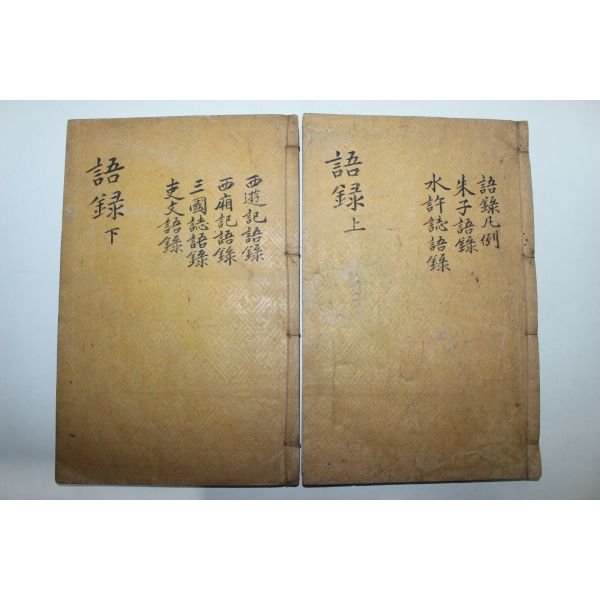 語錄凡例
朱子語錄
水許誌語錄
語録 上
西遊記語錄
西廂記語錄
三國誌語錄
吏文語錄
語録 下